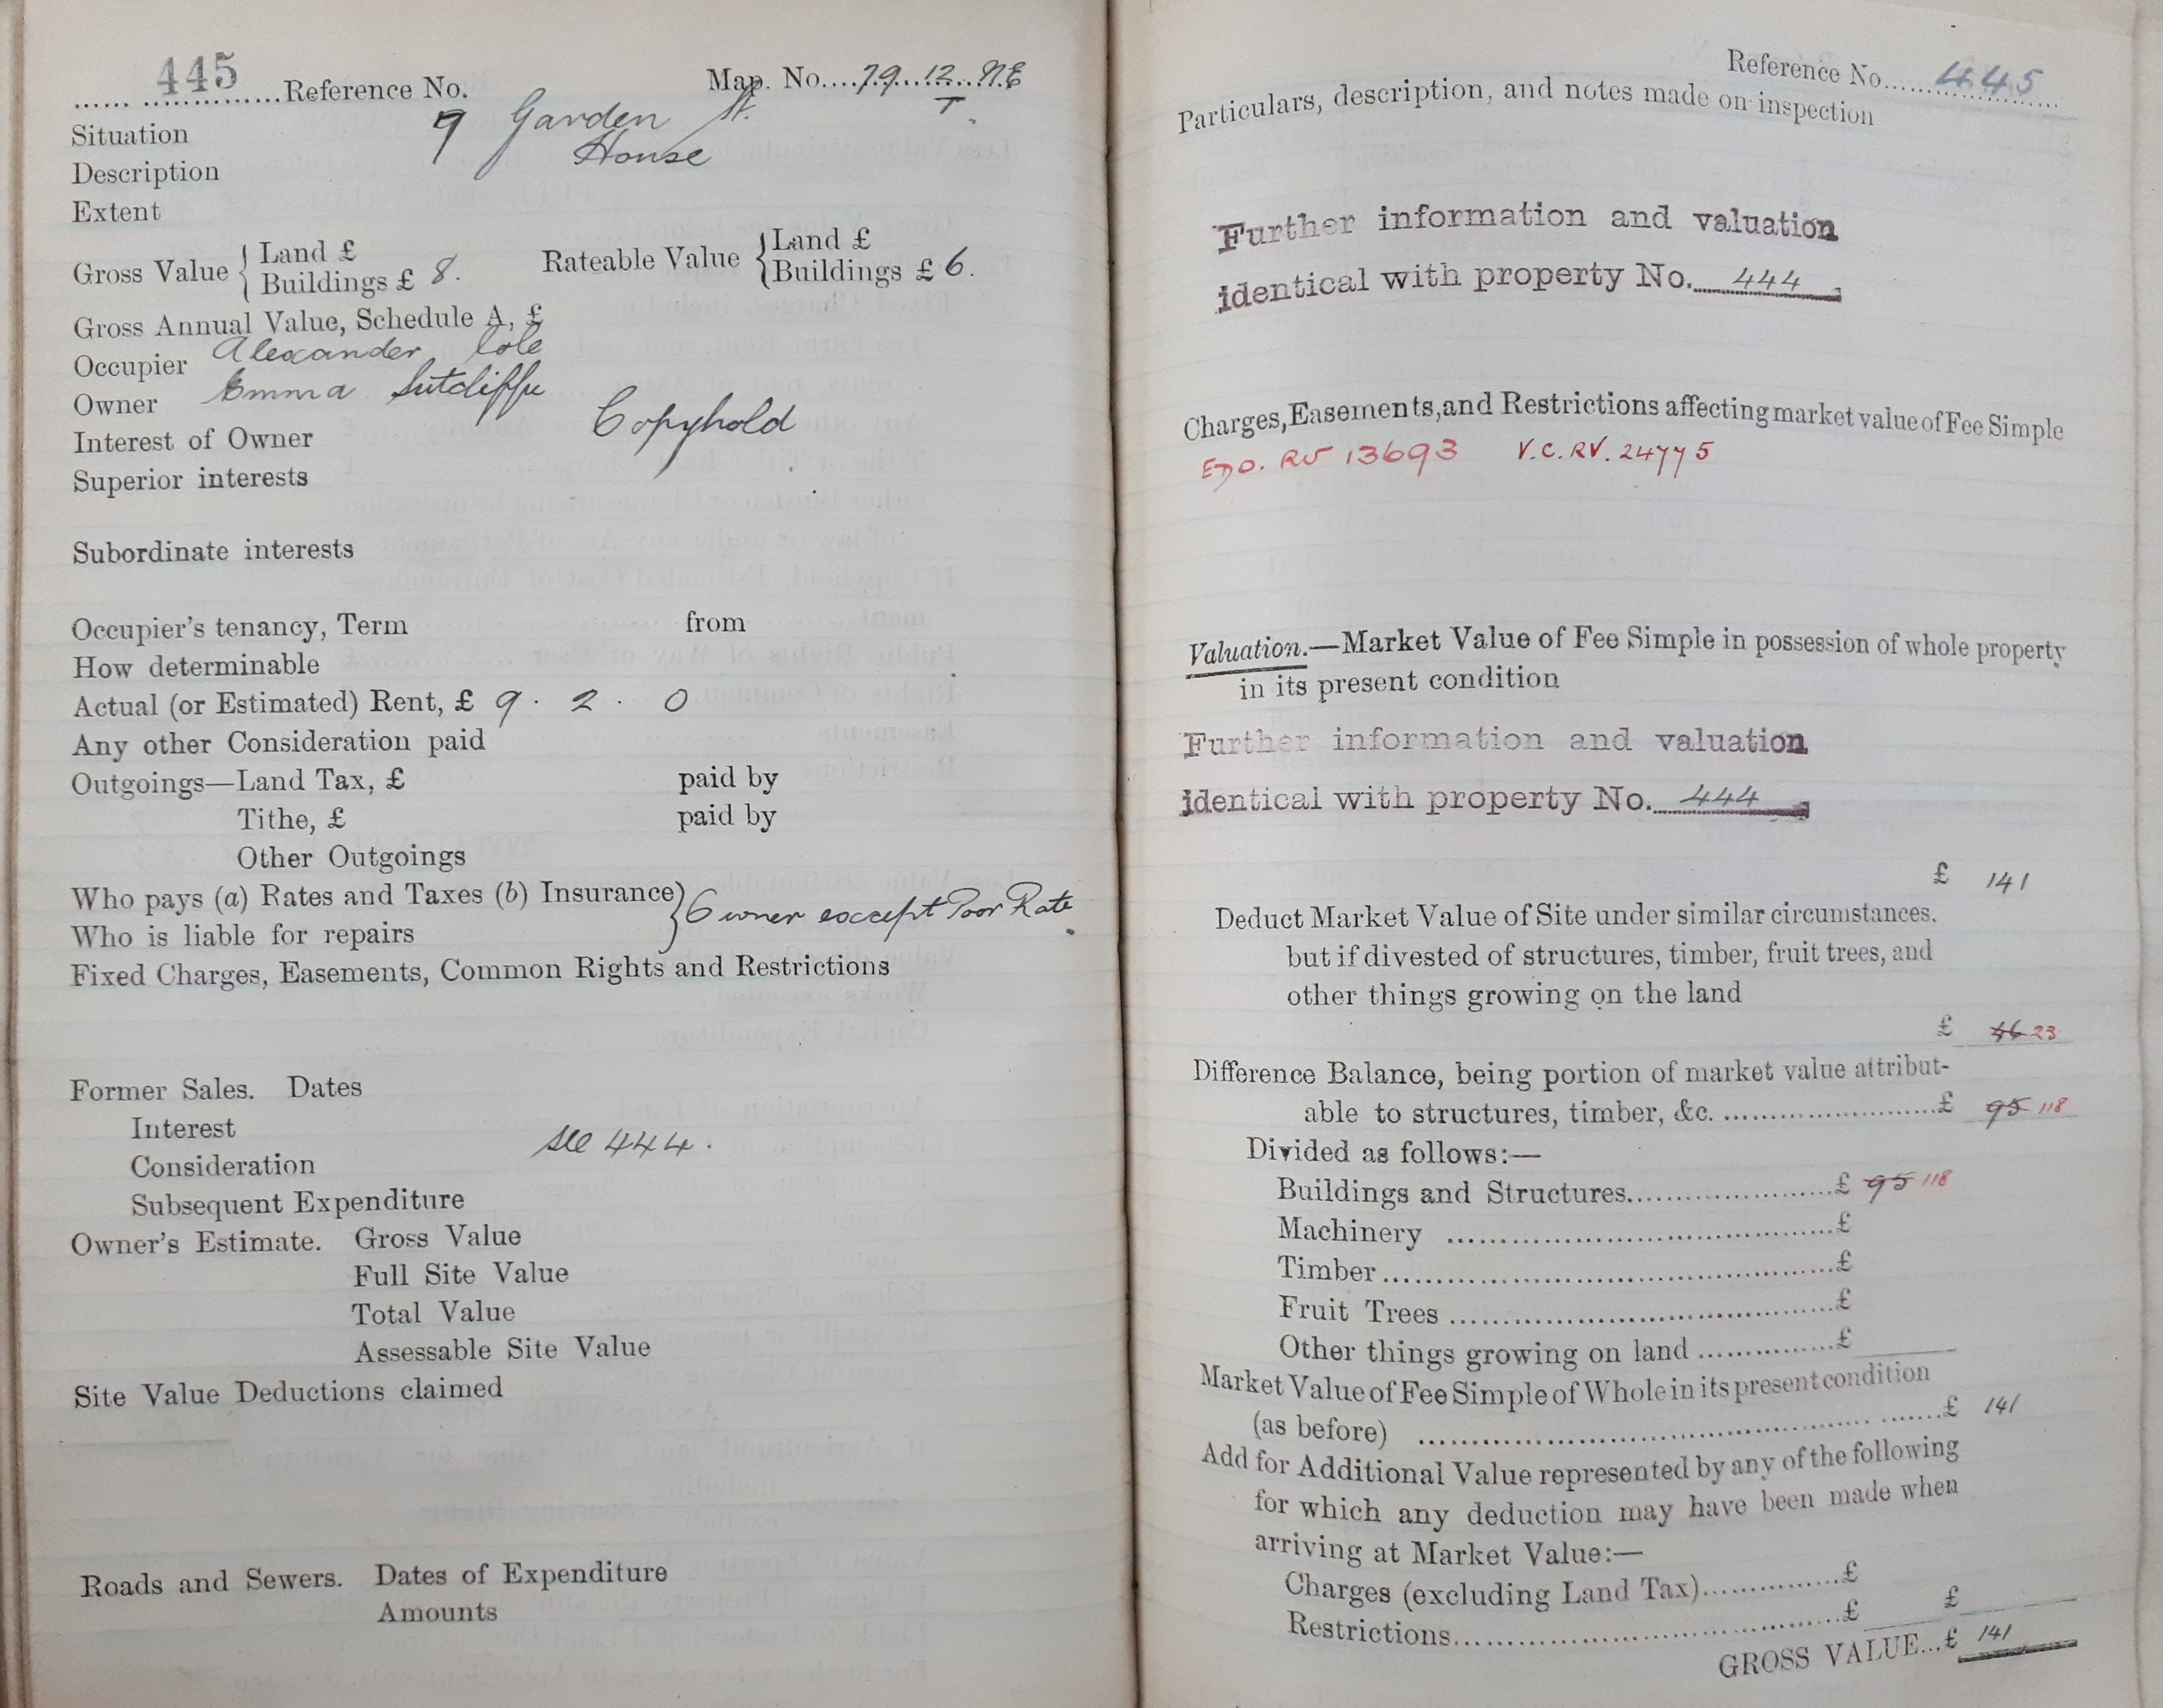 445 Reference No. Map. No. 79 12 NE
T
Situation 9 Garden St.
Description House
Extent
Gross Value { Land £
Buildings £ 8.
Rateable Value { Land £
Buildings £ 6.
Gross Annual Value, Schedule A, £
Occupier Alexander Cole
Owner Emma Sutcliffe
Interest of Owner Copyhold
Superior interests
Subordinate interests
Occupier's tenancy, Term from
How determinable
Actual (or Estimated) Rent, £ 9 . 2 . 0
Any other Consideration paid
Outgoings—Land Tax, £ paid by
Tithe, £ paid by
Other Outgoings
Who pays (a) Rates and Taxes (b) Insurance } Owner except Poor Rate.
Who is liable for repairs
Fixed Charges, Easements, Common Rights and Restrictions
Former Sales. Dates
Interest see 444.
Consideration
Subsequent Expenditure
Owner's Estimate. Gross Value
Full Site Value
Total Value
Assessable Site Value
Site Value Deductions claimed
Roads and Sewers. Dates of Expenditure
Amounts
Reference No. 445
Particulars, description, and notes made on inspection
Further information and valuation
identical with property No. 444
Charges, Easements, and Restrictions affecting market value of Fee Simple
RV 13693 V.C. RV. 24775
Valuation.—Market Value of Fee Simple in possession of whole property
in its present condition
Further information and valuation
identical with property No. 444
£ 141
Deduct Market Value of Site under similar circumstances,
but if divested of structures, timber, fruit trees, and
other things growing on the land
£ 46 23
Difference Balance, being portion of market value attribut-
able to structures, timber, &c. ........ £ 95 118
Divided as follows:—
Buildings and Structures........ £ 95 118
Machinery ........ £
Timber ........ £
Fruit Trees ........ £
Other things growing on land ........ £
Market Value of Fee Simple of Whole in its present condition
(as before) ........ £ 141
Add for Additional Value represented by any of the following
for which any deduction may have been made when
arriving at Market Value:—
Charges (excluding Land Tax)........ £
Restrictions........ £ £
GROSS VALUE... £ 141